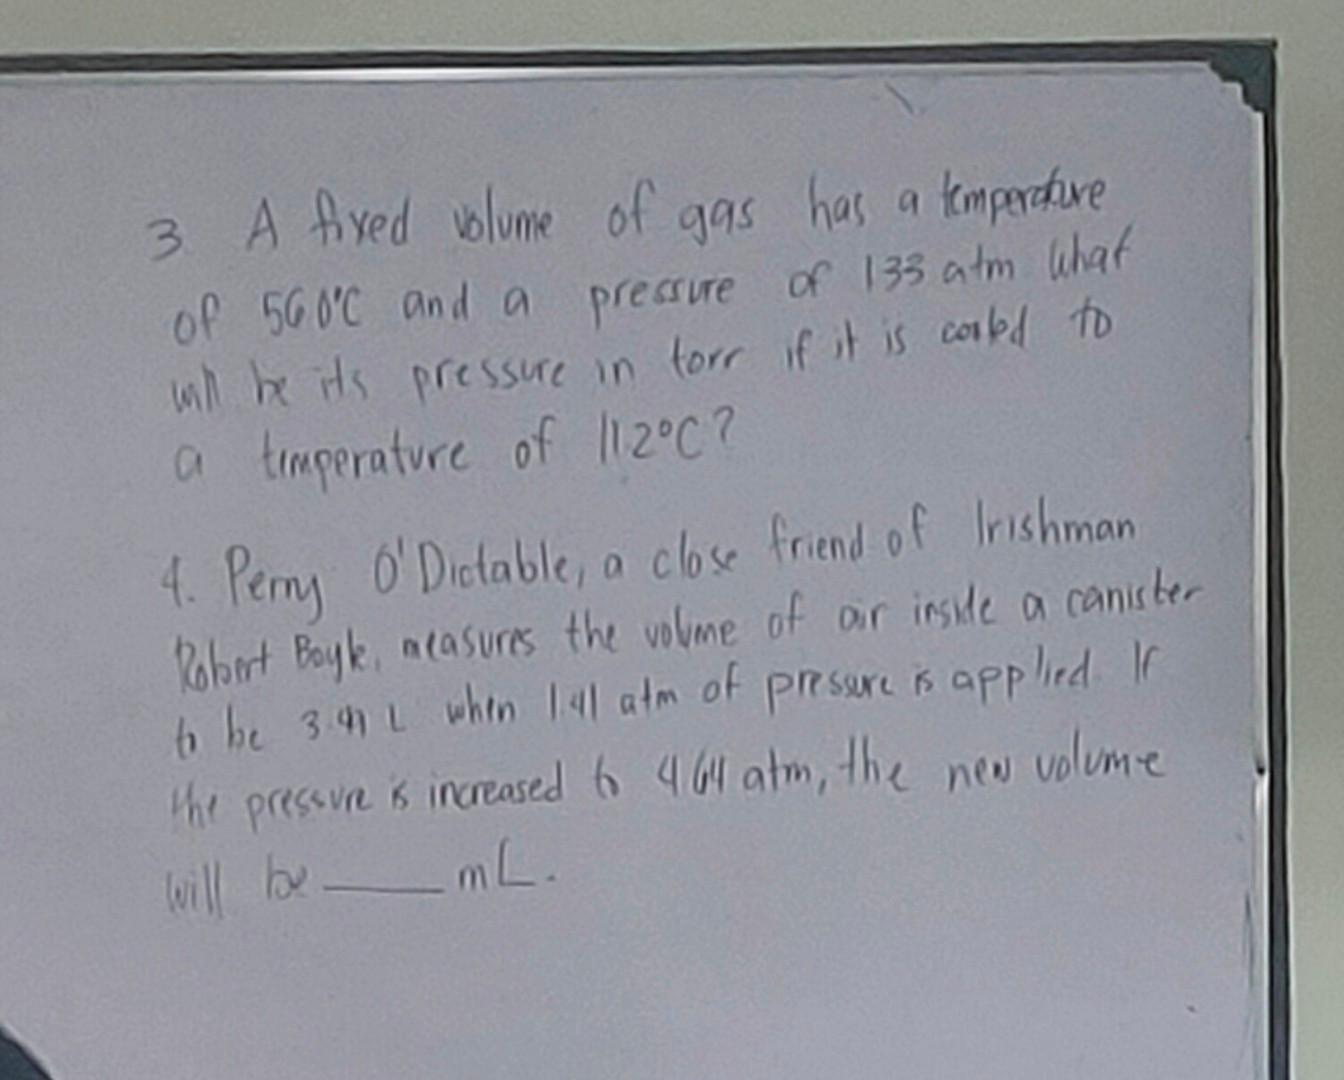 3. A fixed volume of gas has a temperature
of 560°C and a pressure of 133 atm What
will be its pressure in torr if it is cooled to
a temperature of 112°C?
4. Perry O'Dictable, a close friend of Irishman
Robert Boyle, measures the volume of air inside a canister
to be L when 1.41 atm of pressure is applied. If
the pressure is increased to 4.64 atm, the new volume
will be ____ mL.